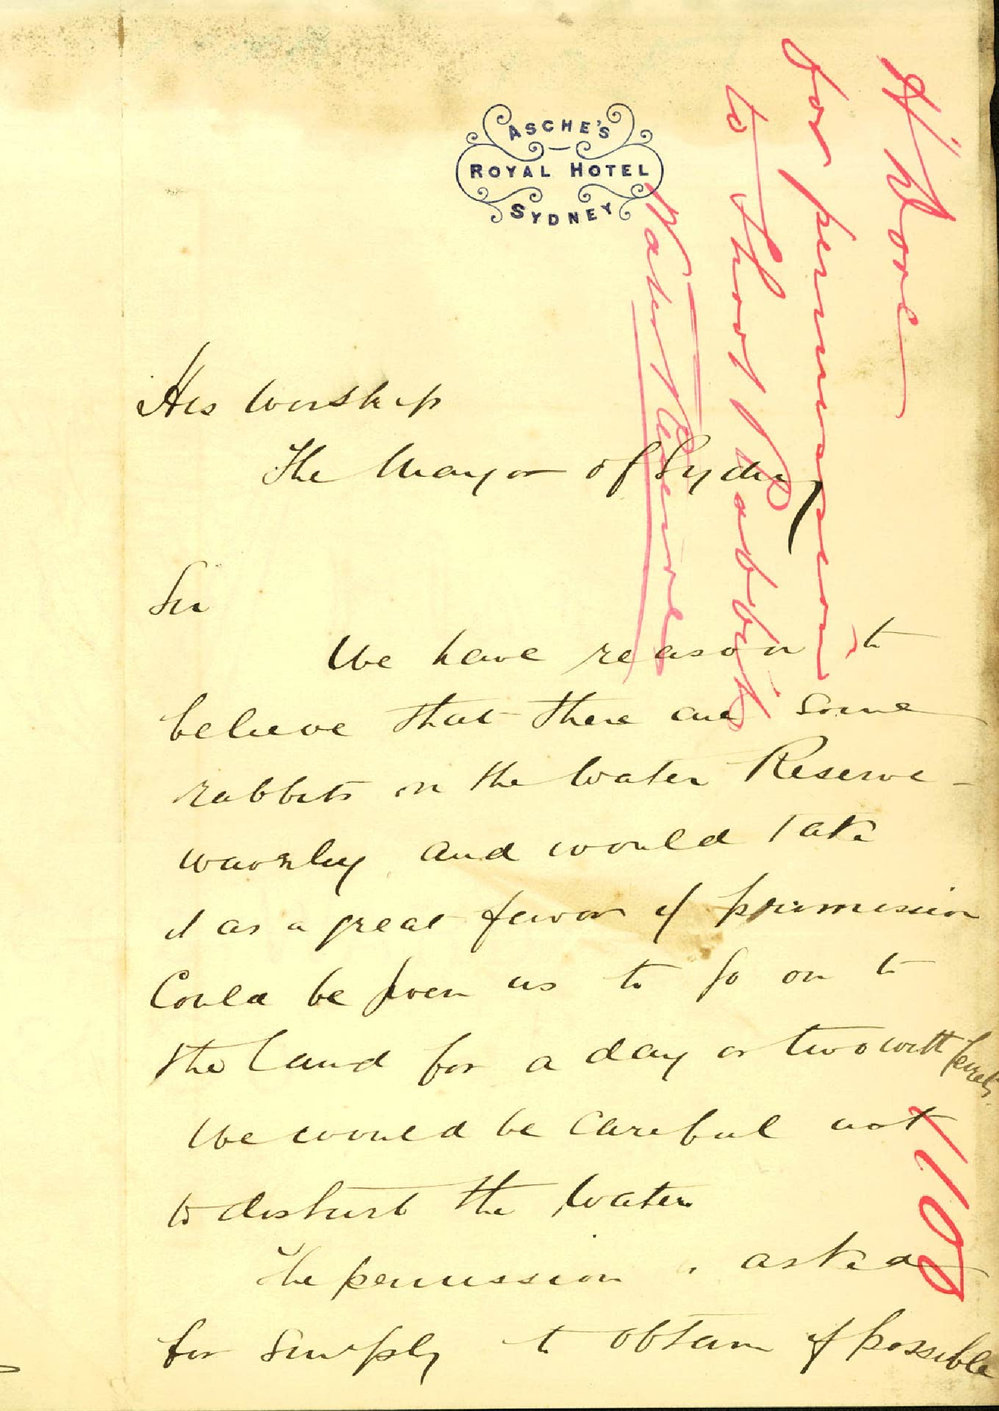 ASCHE'S
ROYAL HOTEL
SYDNEY
His Worship
The Mayor of Sydney
Sir
We have reason to
believe that there are some
rabbits in the Water Reserve -
Waverley and would take
it as a great favor if permission
Could be given us to go on to
the land for a day or two with ferrets.
We would be careful not
to disturb the water
The permission is asked
for simply to obtain if possible
for permission
to shoot Rabbits
Water Reserve